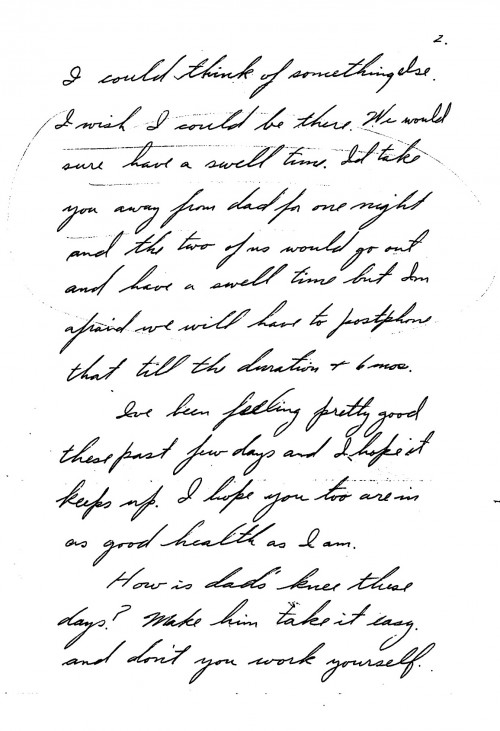 2.
I could think of something else.
I wish I could be there. We would
sure have a swell time. I'd take
you away from dad for one night
and the two of us would go out
and have a swell time but I'm
afraid we will have to postphone
that till the duration + 6 mos.
I've been feeling pretty good
these past few days and I hope it
keeps up. I hope you too are in
as good health as I am.
How is dad's knee these
days? Make him take it easy.
and don't you work yourself.